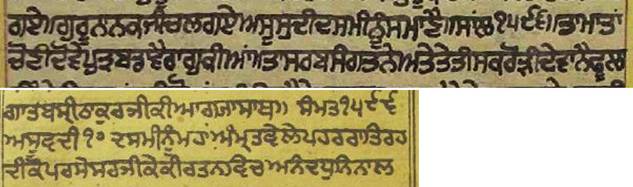 ਗਏ॥ਗੁਰੂਨਾਨਕਜੀਚਲਗਏਅਸੂਸੁਦੀਦਸਮੀਨੂੰਸਮਾਣੈ॥ਸਾਲ੧੫੯੬॥ਤਾਮਾਤਾਂ
ਚੋਣੀਦੋਵੇਪੁਤ੍ਰਬਡਵੈਰਾਗੁਕੀਆਅਤਾਸਰਬਸੰਗਤਨੇਅਤੇਤੇਤੀਸਕਰੋੜੀਦੇਵਾਨੈਫੂਲ
ਗਾਤਬਸ੍ਰੀਠਾਕੁਰਜੀਕੀਆਗਆਸਾਥ॥ ਸੰਮਤ੧੫੯੬
ਅਸੂਵਦੀ੧੦ ਦਸਮੀਨੂੰਮਹਾਂਅੰਮ੍ਰਤਵੇਲੇਪਹਰਰਾਤਿਰਹ
ਦੀਕੋਪਰਮੇਸਰਜੀਕੇਕੀਰਤਨਵਿਚਅਨੰਦਧੁਨਿਨਾਲ